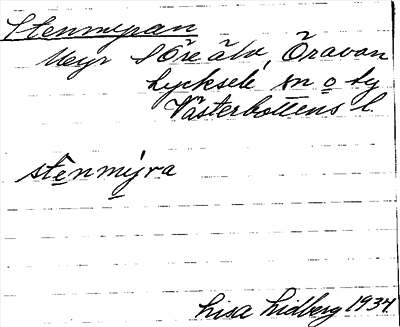 Stenmyran
Myr S Öre älv, Öravan
Lycksele sn o ty
Västerbottens l
stenmýra
Lisa Lidberg 1934